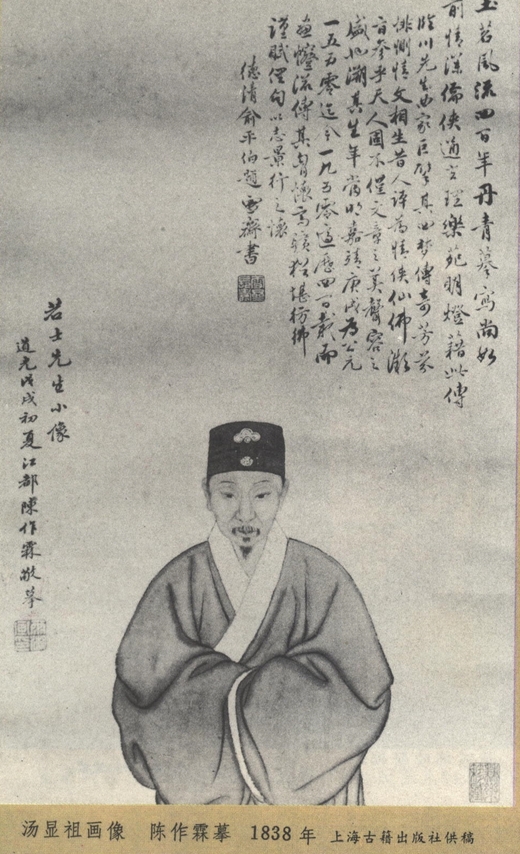 玉茗風流四百年丹青摹寫尚如
前情深儒俠通玄理樂苑明燈籍此傳
臨川先生曲家巨擘其四夢傳奇芳芬
悱惻情文相生昔人譯為情俠仙佛
旨參乎天人固不僅文章之美聲容之
盛也溯其生年當明嘉靖庚戌為公元
一五五零迄今一九五零適歷四百載而
流傳其胷懷高曠猶堪彷彿
謹賦俚句以志景行之懷
德清俞平伯題雪齋書
若士先生小像
道光戊戌初夏江都陳作霖敬摹
汤显祖画像 陈作霖摹 1838年 上海古籍出版社供稿